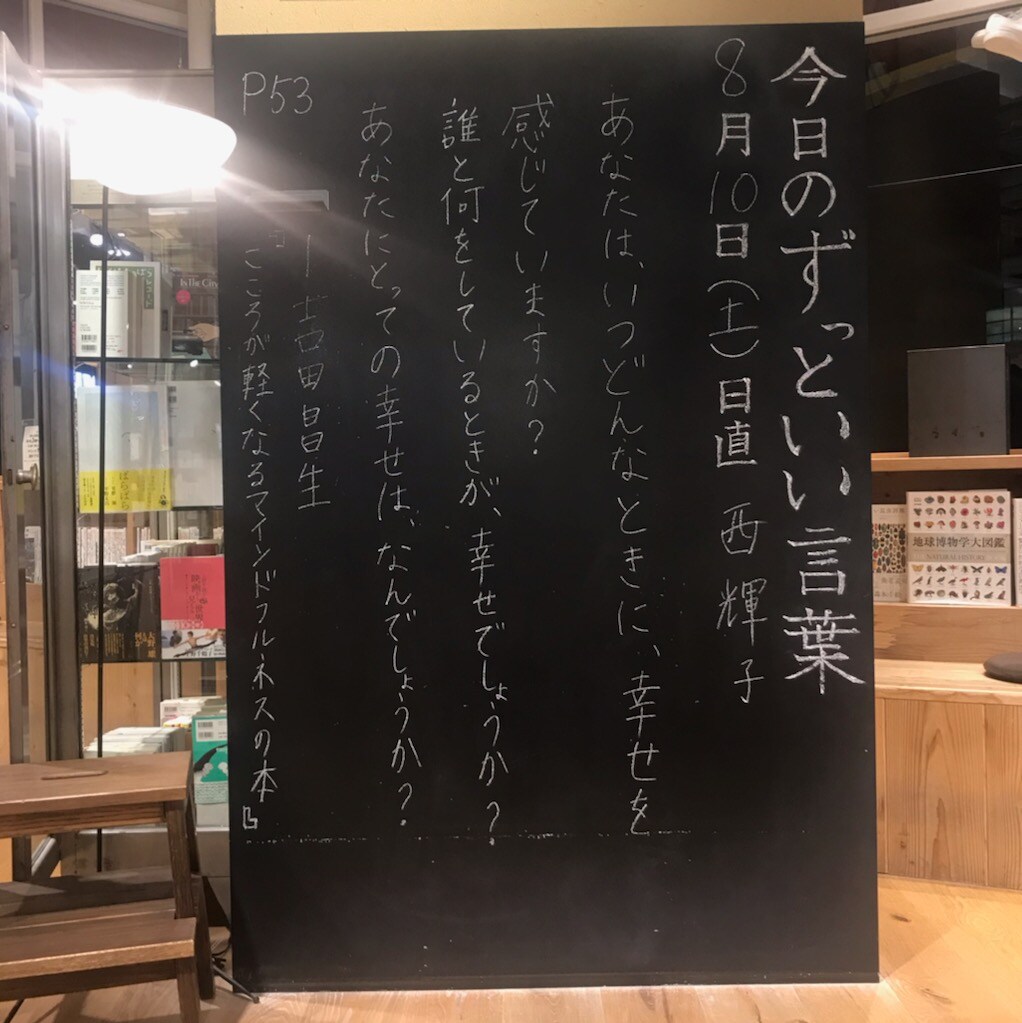 今日のずっといい言葉
8月10日(土)日直 西 輝子
あなたは、いつどんなときに、幸せを
感じていますか?
誰と何をしているときが、幸せでしょうか?
あなたにとっての幸せは、なんでしょうか?
P53
吉田昌生
『こころが軽くなるマインドフルネスの本』
In The City
ぱらぱら
地球博物学大図鑑
NATURAL HISTORY